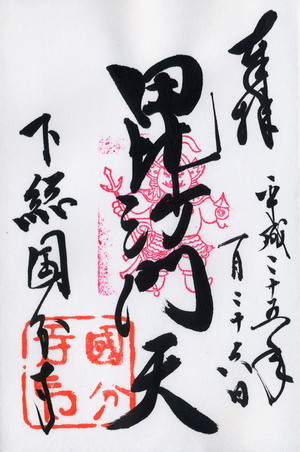 奉拝
平成二十五年
一月二十六日
毘沙門天
下総国分寺
國分
寺印